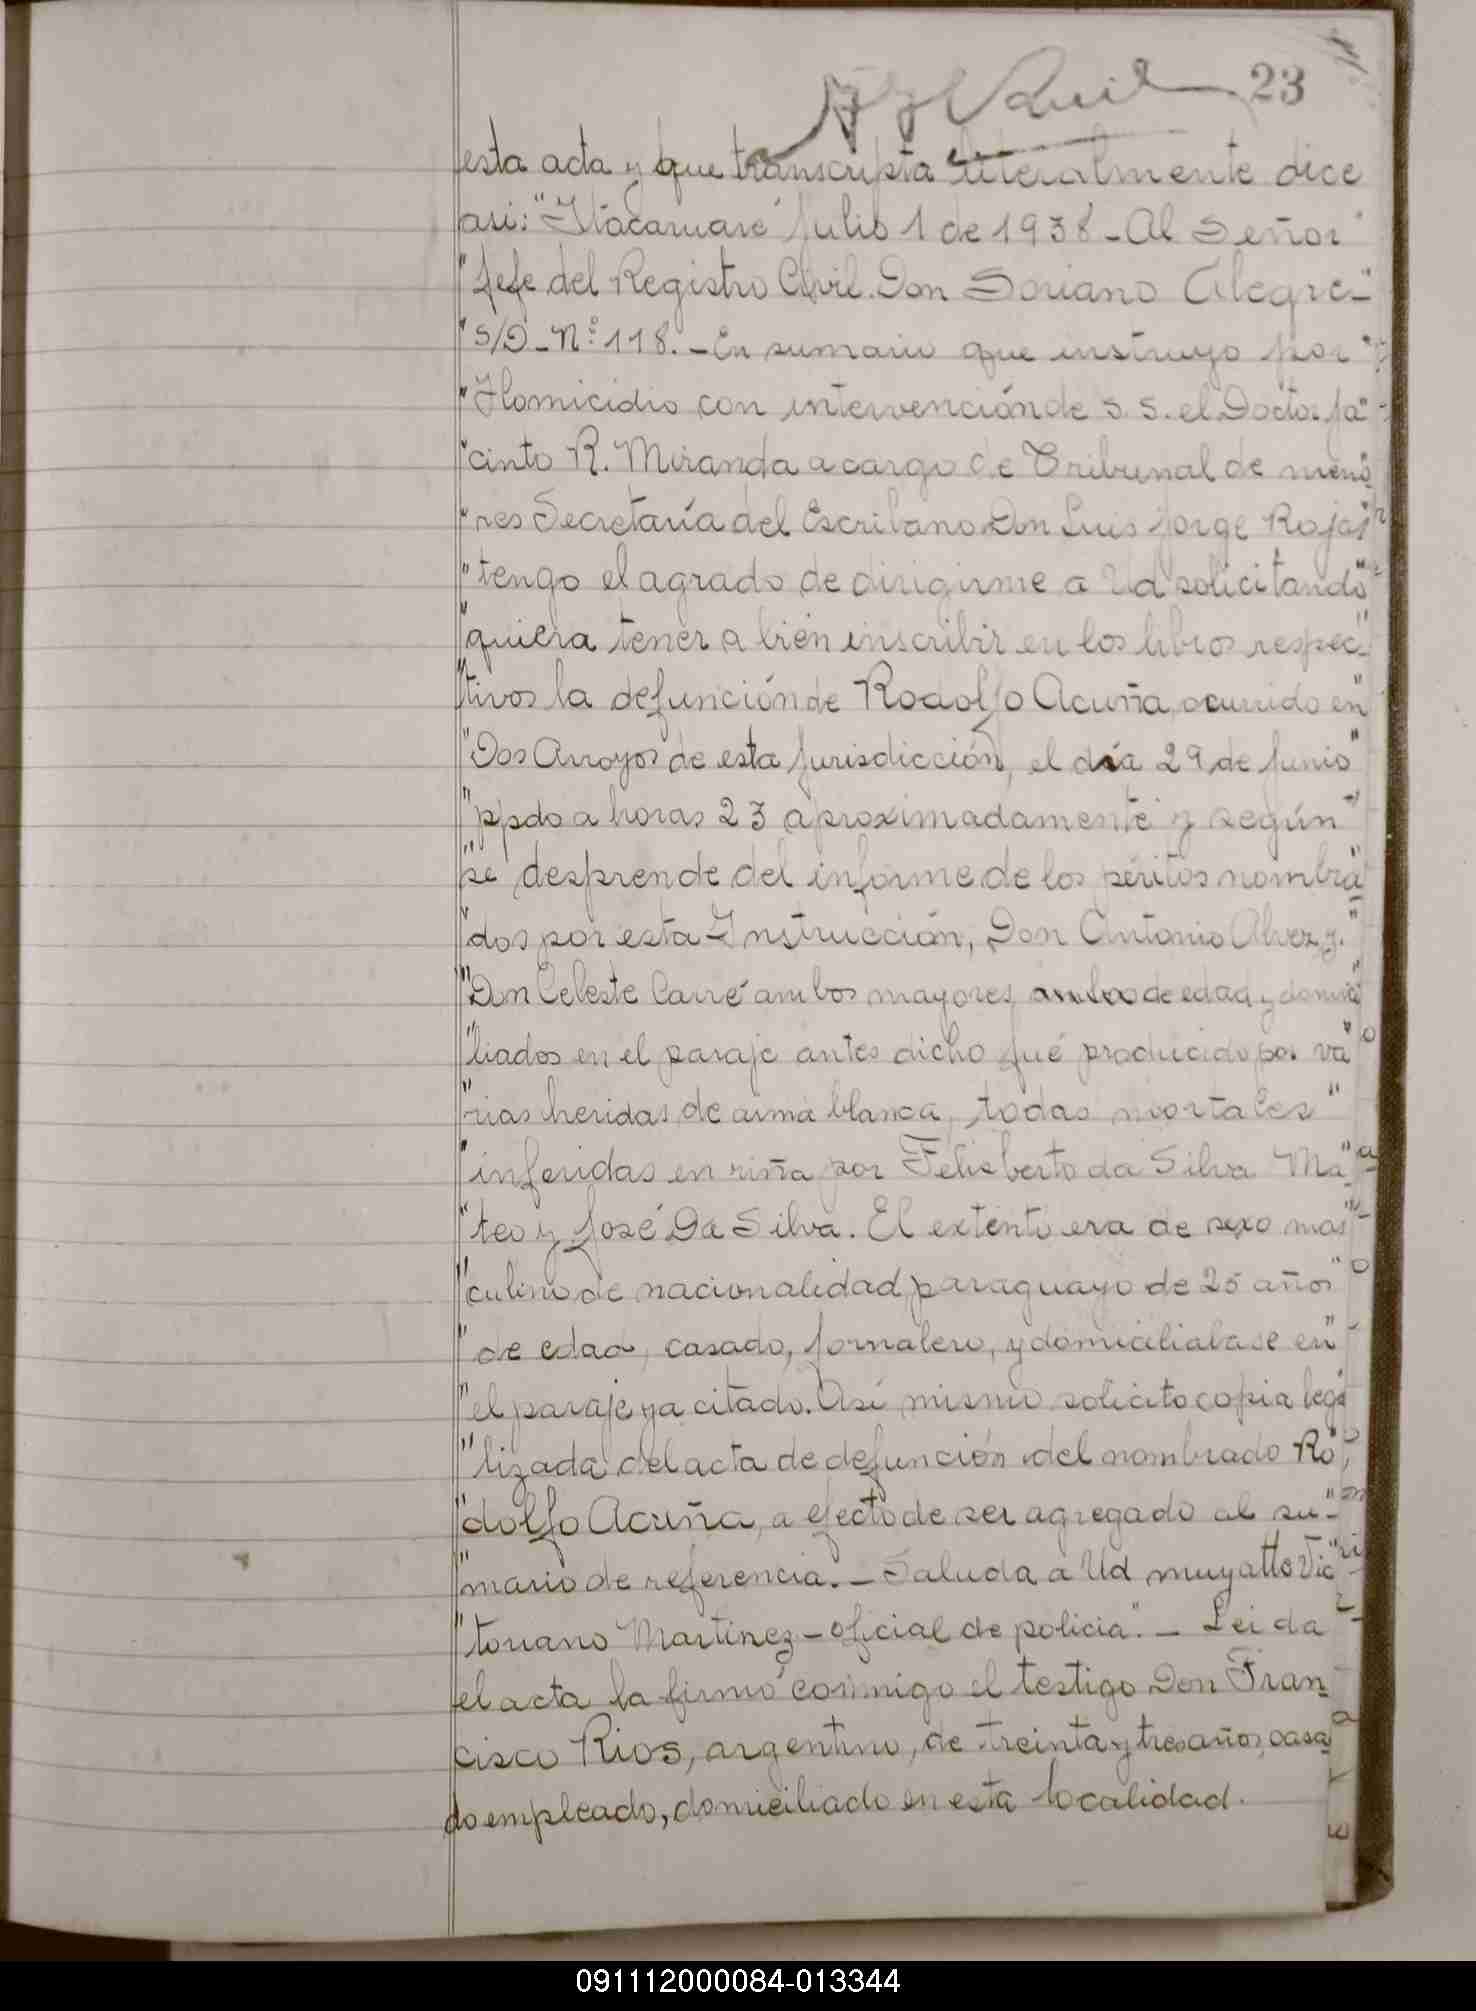 23
esta acta y que transcripta literalmente dice
asi: "Itacaruaré Julio 1 de 1938 - Al Señor
"Jefe del Registro Civil. Don Soriano Alegre-"
"S/D - Nº 118. - En sumario que instruyo por"
"Homicidio con intervención de S. S. el Doctor Ja"
"cinto R. Miranda a cargo de Tribunal de meno
"res Secretaría del Escribano Don Luis Jorge Rojas"
"tengo el agrado de dirigirme a Ud solicitando"
"quiera tener a bien inscribir en los libros respec"
"tivos la defunción de Rodolfo Acuña, ocurrido en"
"Dos Arroyos de esta Jurisdicción, el día 29 de Junio"
"ppdo a horas 23 aproximadamente y según"
"se desprende del informe de los péritos nombra"
"dos por esta Instrucción, Don Antonio Alvez y"
"Don Celeste Carré ambos mayores de edad y domici"
"liados en el paraje antes dicho fué producido por va"
"rias heridas de arma blanca, todas mortales"
"inferidas en riña por Felisberto da Silva Ma"
"teo y José Da Silva. El extinto era de sexo mas"
"culino de nacionalidad paraguayo de 25 años"
"de edad, casado, jornalero, y domiciliabase en"
"el paraje ya citado. Asi mismo solicito copia lega
"lizada del acta de defunción del nombrado Ro"
"dolfo Acuña, a efecto de ser agregado al su-"
"mario de referencia. - Saluda a Ud muy atto Vic"
"toriano Martinez - oficial de policia". - Leida
el acta la firmó conmigo el testigo Don Fran-
cisco Rios, argentino, de treinta y tres años, casa
do empleado, domiciliado en esta localidad.
091112000084-013344